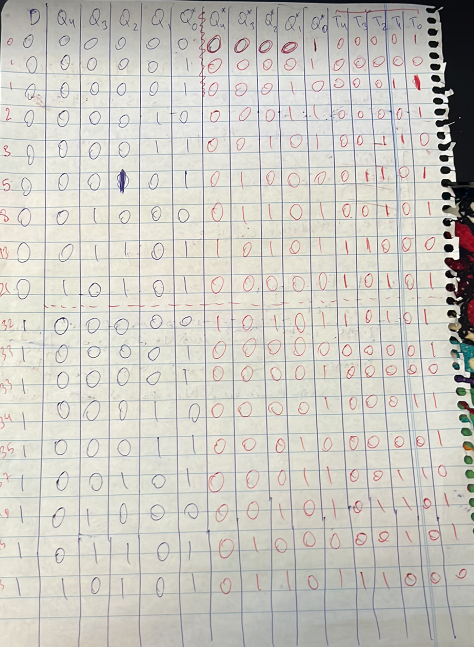 D Q4 Q3 Q2 Q1 Q0 Q4* Q3* Q2* Q1* Q0* T4 T3 T2 T1 T0
0 0 0 0 0 0 0 0 0 0 0 1 0 0 0 0 1
0 0 0 0 0 1 0 0 0 0 1 0 0 0 0 1
1 0 0 0 0 0 1 0 0 0 1 0 0 0 0 1 1
2 0 0 0 0 1 0 0 0 0 1 1 0 0 0 0 1
3 0 0 0 0 1 1 0 0 1 0 1 0 0 1 1 0
5 0 0 0 0 1 0 1 0 0 0 0 1 1 0 1
8 0 0 1 0 0 0 0 1 1 0 1 0 0 1 0 1
13 0 0 1 1 0 1 1 0 1 0 1 1 1 0 0 0
21 0 1 0 1 0 1 0 0 0 0 0 1 0 1 0 1
32 1 0 0 0 0 0 1 0 1 0 1 1 0 1 0 1
1 0 0 0 0 0 0 0 0 0 0 0 0 0 1
33 1 0 0 0 0 1 0 0 0 0 1 0 0 0 0 0
34 1 0 0 0 1 0 0 0 0 0 1 0 0 0 1 1
35 1 0 0 0 1 1 0 0 0 1 0 0 0 0 0 1
37 1 0 0 1 0 1 0 0 0 1 1 0 0 1 1 0
1 0 1 0 0 0 0 0 1 0 1 0 1 1 0 1
1 0 1 1 0 1 0 1 0 0 0 0 0 1 0 1
1 1 0 1 0 1 0 1 1 0 1 1 1 0 0 0